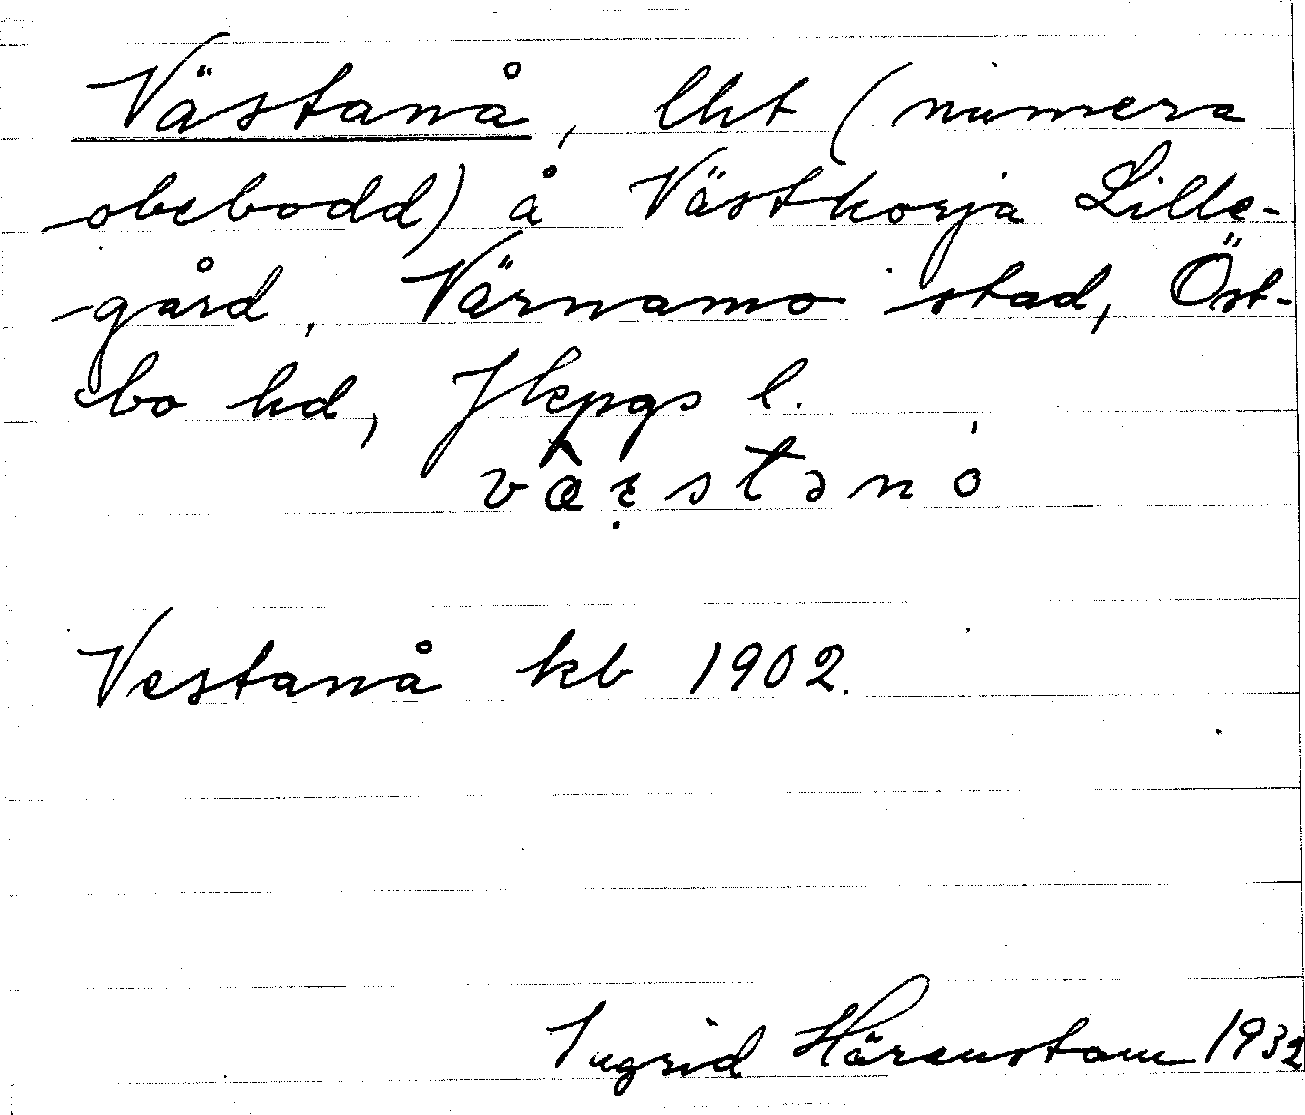 Västanå, lht (numera
obebodd) å Västhorja Lille-
gård, Värnamo stad, Öst-
bo hd, Jkpgs l.
Vestanå kb 1902.
Ingrid Härenstam 1932